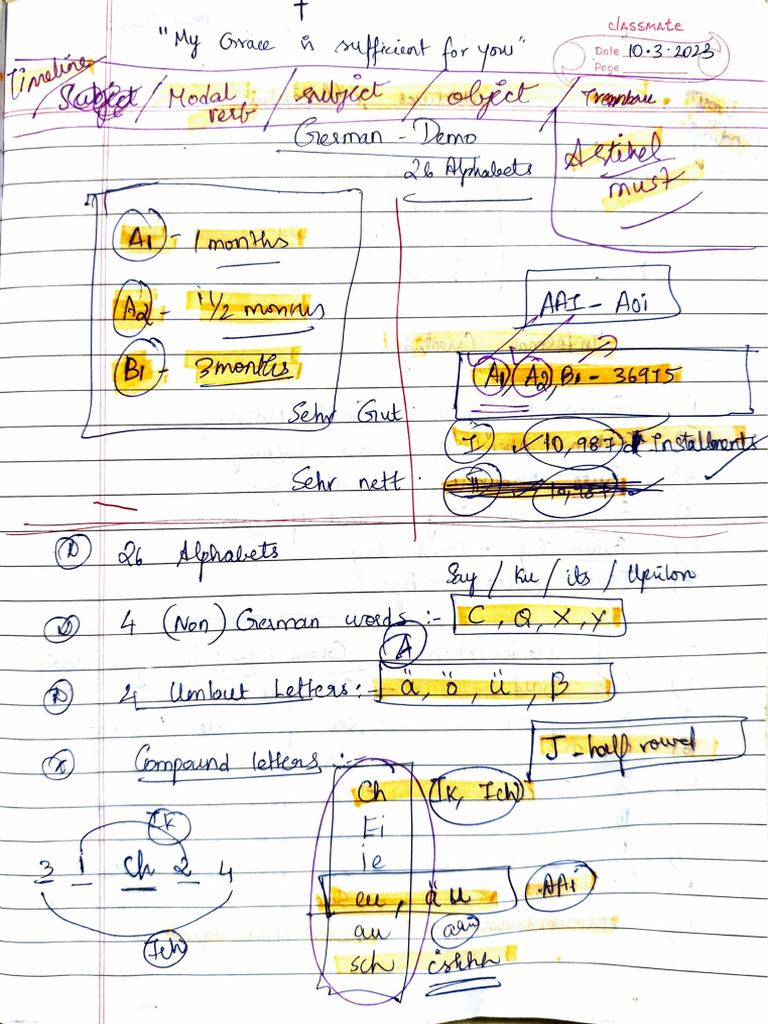 "My Grace is sufficient for you"
classmate
Date 10.3.2023
Page
Timeline
Subject / Modal verb / subject / object /
German - Demo
26 Alphabets
Artikel
must
A1 - 1 months
A2 - 1 1/2 months
B1 - 3 months
AAI - Aoi
A1, A2, B1 - 36975
Sehr Gut
I 10,987 Installments
Sehr nett
II 10,987
26 Alphabets
Say / Ku / its / Upsilon
4 (Non) German words :- C, Q, X, Y
A
4 Umlaut Letters :- ä, ö, ü, β
J - half vowel
Compound letters :-
Ch (Ik, Ich)
Ei
ie
eu, äu AAi
au
sch ishhh
Ik
3 1 Ch 2 4
Ich